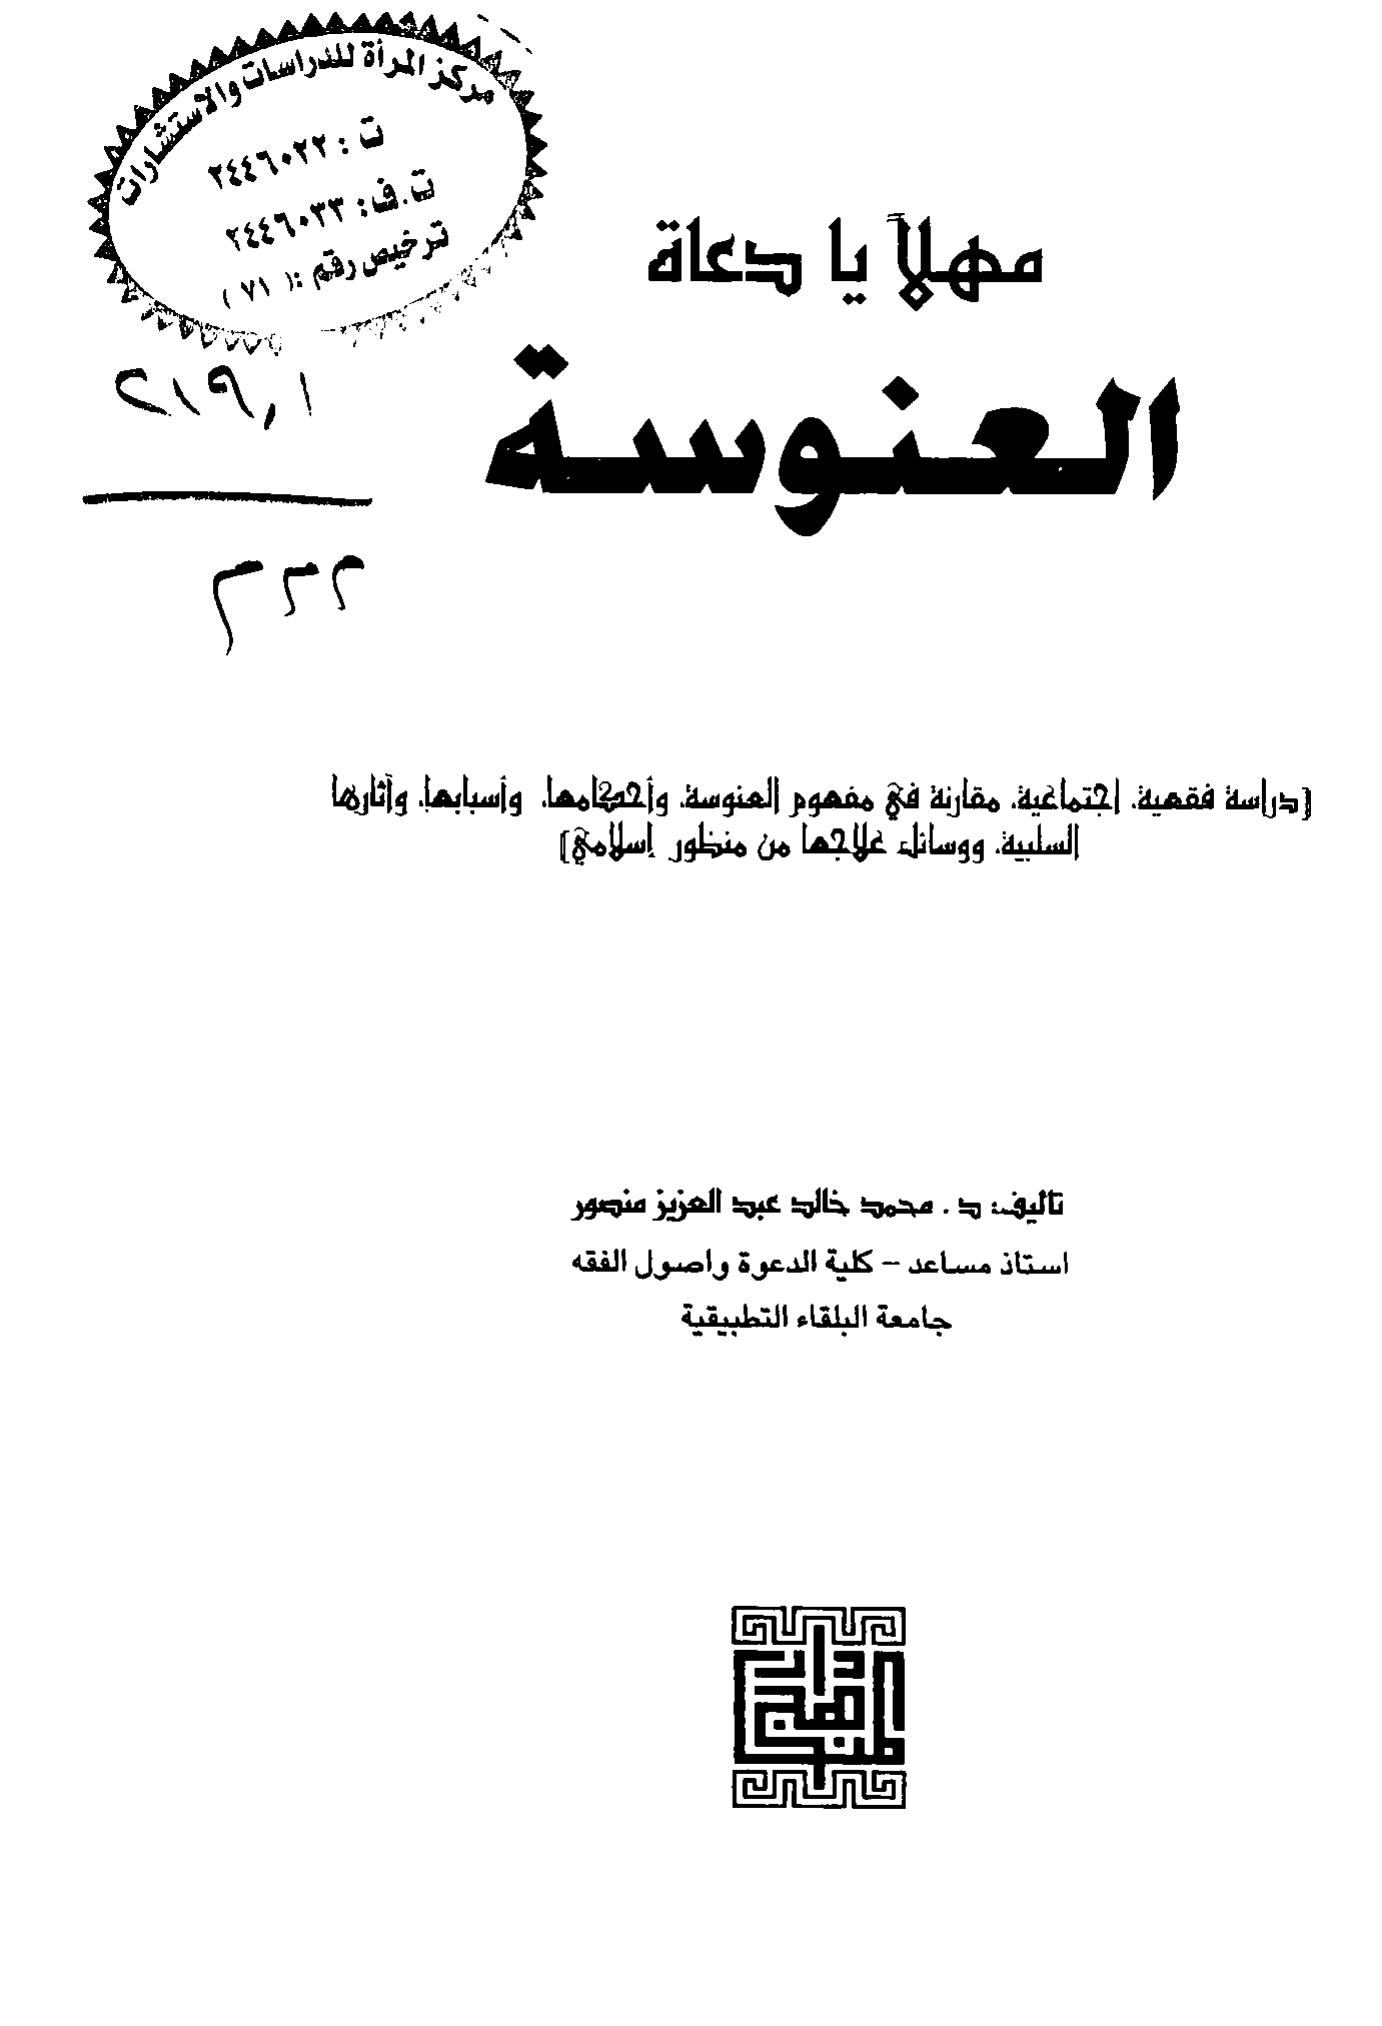 مركز المرأة للدراسات والاستشارات
ت : ٢٤٤٦٠٢٢
ت.ف: ٢٤٤٦٠٣٣
ترخيص رقم :( ٧١ )
٢١٩,١
مهلاً يا دعاة
العنوسة
(دراسة فقهية، إجتماعية، مقارنة في مفهوم العنوسة، وأحكامها، وأسبابها، وآثارها
السلبية، ووسائل علاجها من منظور إسلامي)
تأليف: د . محمد خالد عبد العزيز منصور
استاذ مساعد – كلية الدعوة واصول الفقه
جامعة البلقاء التطبيقية
دار
المناهج